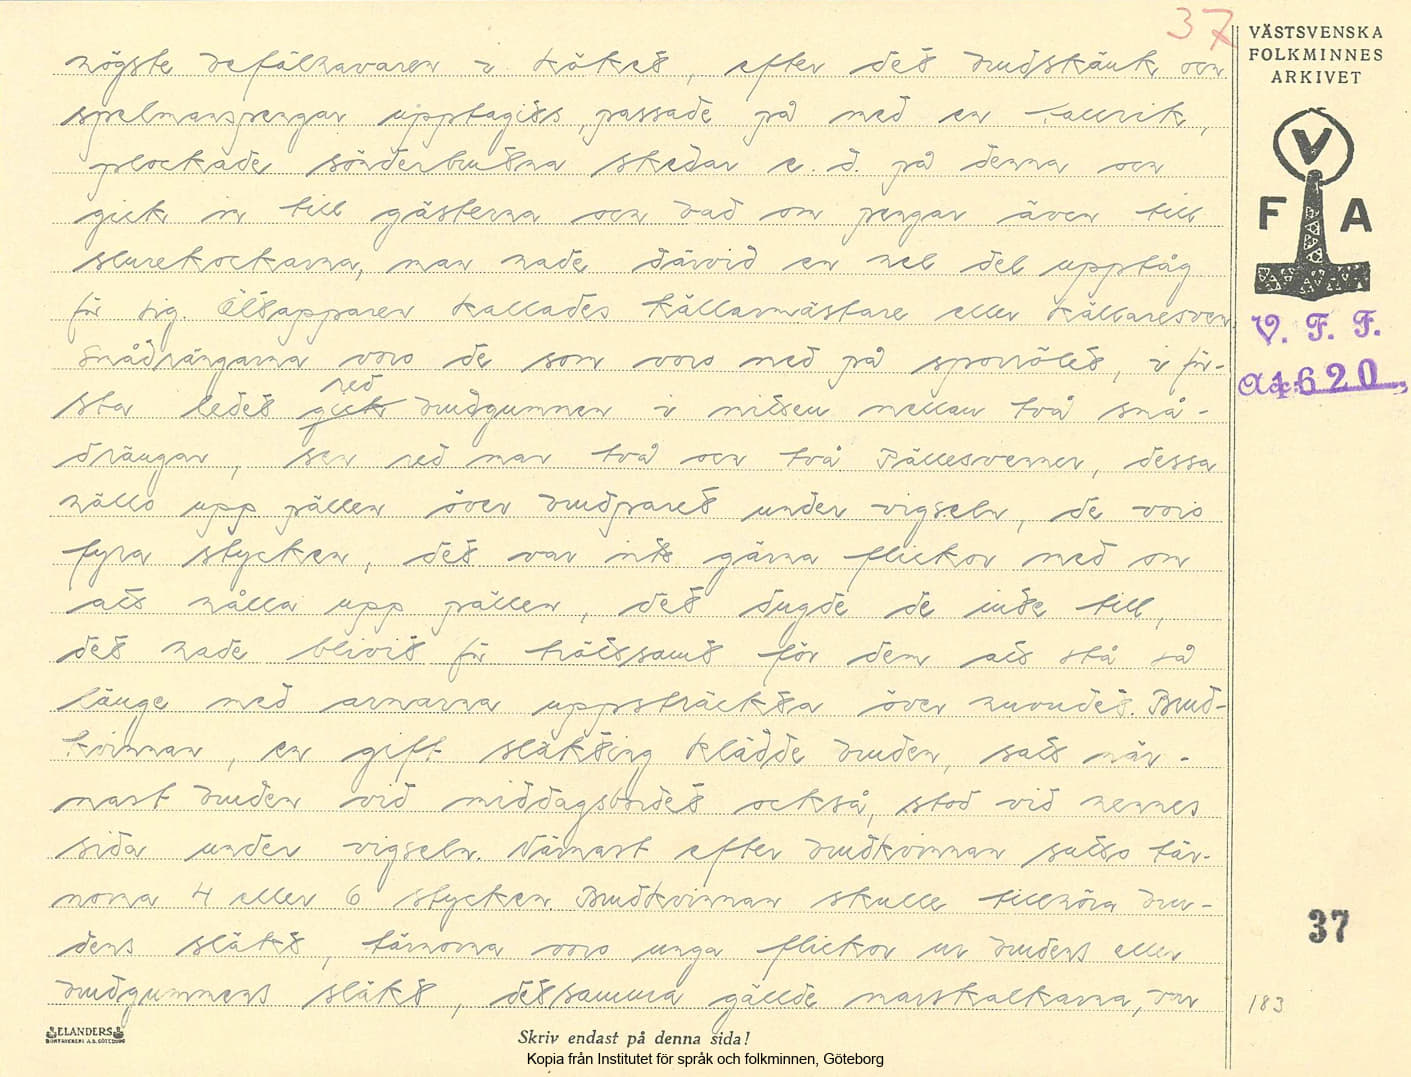 37
VÄSTSVENSKA
FOLKMINNES
ARKIVET
V
F A
V. F. F.
Acc. 4620
högste befälhavaren i köket, efter det brudskänk och
spelmanspengar upptagits, passade på med en tallrik,
plockade sönderbrutna skedar e. d. på denna och
gick in till gästerna och bad om pengar även till
slurekockarna, man hade därvid en hel del upptåg
för sig. Öltapparen kallades källarmästare eller källaresven.
Smådrängarna voro de som voro med på sporrölet, i för-
sta ledet gick red brudgummen i mitten mellan två små-
drängar, sen red man två och två. Pällesvenner, dessa
hållo upp pällen över brudparet under vigseln, de voro
fyra stycken, det var inte gärna flickor med om
att hålla upp pällen, det dugde de inte till,
det hade blivit för trättsamt för dem att stå så
länge med armarna uppsträckta över huvudet. Brud-
kvinnan, en gift släkting klädde bruden, satt när-
mast bruden vid middagsbordet också, stod vid hennes
sida under vigseln. Närmast efter brudkvinnan sutto tär-
norna 4 eller 6 stycken. Brudkvinnan skulle tillhöra bru-
dens släkt, tärnorna voro unga flickor ur brudens eller
brudgummens släkt, detsamma gällde marskalkarna, var
37
183
ELANDERS
BOKTRYCKERI A.B. GÖTEBORG
Skriv endast på denna sida!
Kopia från Institutet för språk och folkminnen, Göteborg